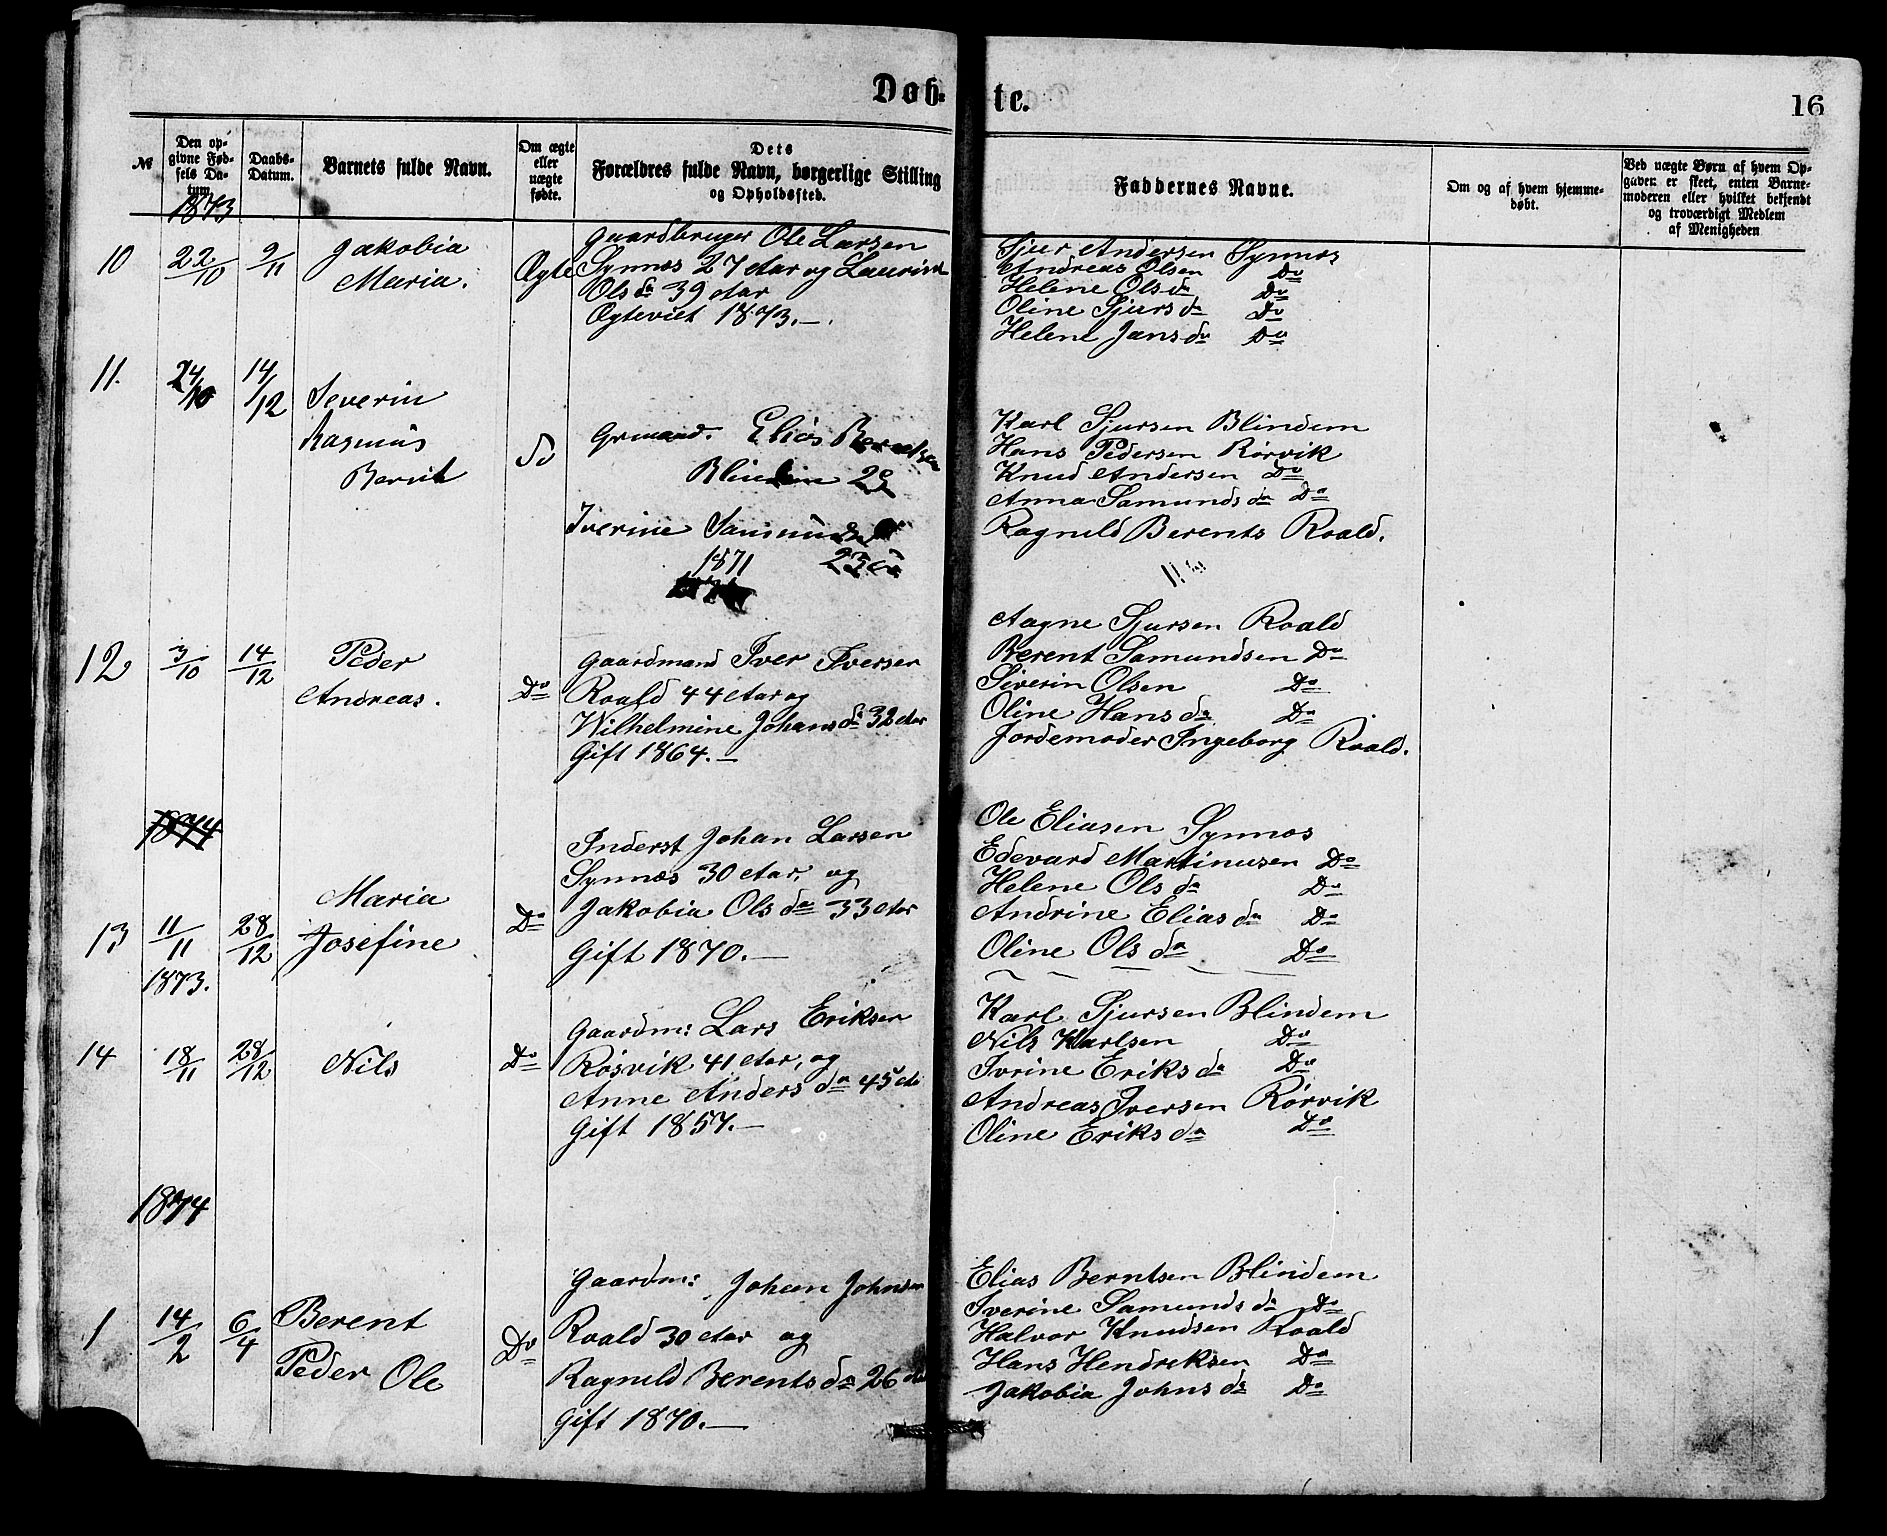 Døb-
te.
16
№
Den op-
givne Fød-
sels Da-
tum.
Daabs-
Datum.
Barnets fulde Navn.
Om ægte
eller
uægte
fødte.
Dets
Forældres fulde Navn, borgerlige Stilling
og Opholdssted.
Faddernes Navne.
Om og af hvem hjemme-
døbt.
Ved uægte Børn af hvem Op-
gaven er skeet, enten Barne-
moderen eller hvilket bekjendt
og troværdigt Medlem
af Menigheden
1873
10
22/10
9/11
Jakobia
Maria.
Ægte
Gaardbruger Ole Larsen
Synnæs 27 Aar og Laurine
Olsda 39 Aar
Ægteviet 1873.—.
Sjur Andersen Synnæs
Andreas Olsen Do
Helene Olsda Do
Oline Sjursda Do
Helene Jansda Do
11.
24/10
14/12
Severin
Rasmus
Bernt
Do
Grmand. Elias Berntsen
Blindem 29
Iverine Samunds
1871 23
Karl Sjursen Blindem
Hans Pedersen Rørvik
Knud Andersen Do
Anna Samundsda Do
Ragnild Berents Roald.
12
3/10
14/12
Peder
Andreas.
Do
Gaardmand Iver Iversen
Roald 44 Aar og
Wilhelmine Johansda 32 Aar
Gift 1864.—
Aagne Sjursen Roald
Berent Samundsen Do
Siverin Olsen Do
Oline Hansda Do
Jordemoder Ingeborg Roald.
1874
13
11/11
1873.
28/12
Maria
Josefine
Do
Inderst Johan Larsen
Synnæs 30 Aar, og
Jakobia Olsda 33 Aar
Gift 1870.—
Ole Eliasen Synnæs
Edevard Martinusen Do
Helene Olsda Do
Andrine Eliasda Do
Oline Olsda Do
14
18/11
28/12
Nils
Do
Gaardm: Lars Eriksen
Røsvik 41 Aar, og
Anne Andersda 45 A
Gift 1857.—
Karl Sjursen Blindem
Nils Karlsen Do
Ivrine Eriksda Do
Andreas Iversen Rørvik
Oline Eriksda Do
1874
1
14/2
6/4
Berent
Peder Ole
Do
Gaardm: Johan Johnsen
Roald 30 Aar og
Ragnild Berentsda 26 Aar
Gift 1870.—
Elias Berntsen Blindem
Iverine Samundsda Do
Halvor Knudsen Roald
Hans Hendriksen Do
Jakobia Johnsda Do